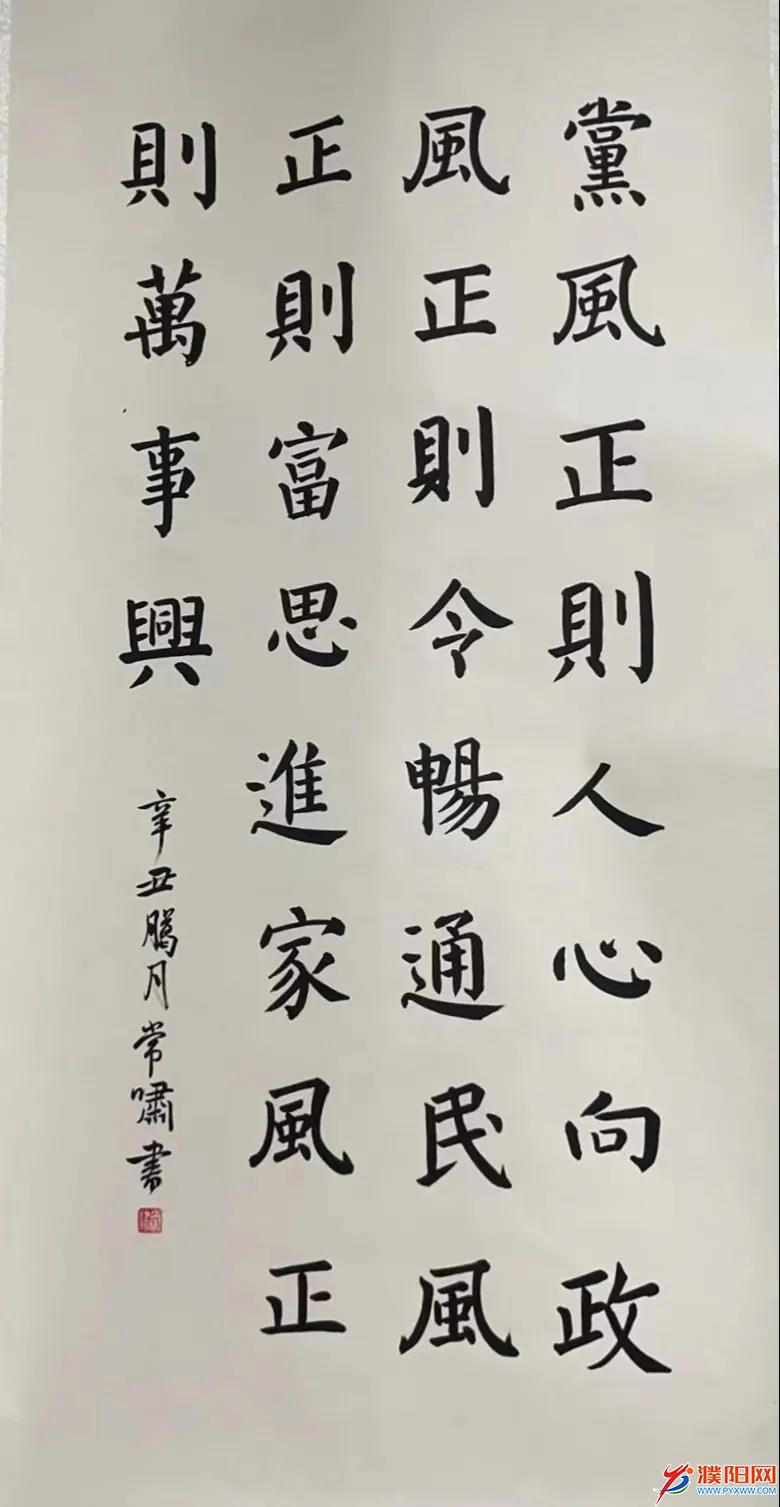 黨風正則人心向政
風正則令暢通民風
正則富思進家風正
則萬事興
辛丑腾月常嘯书
濮阳网
WWW.PYXWW.COM